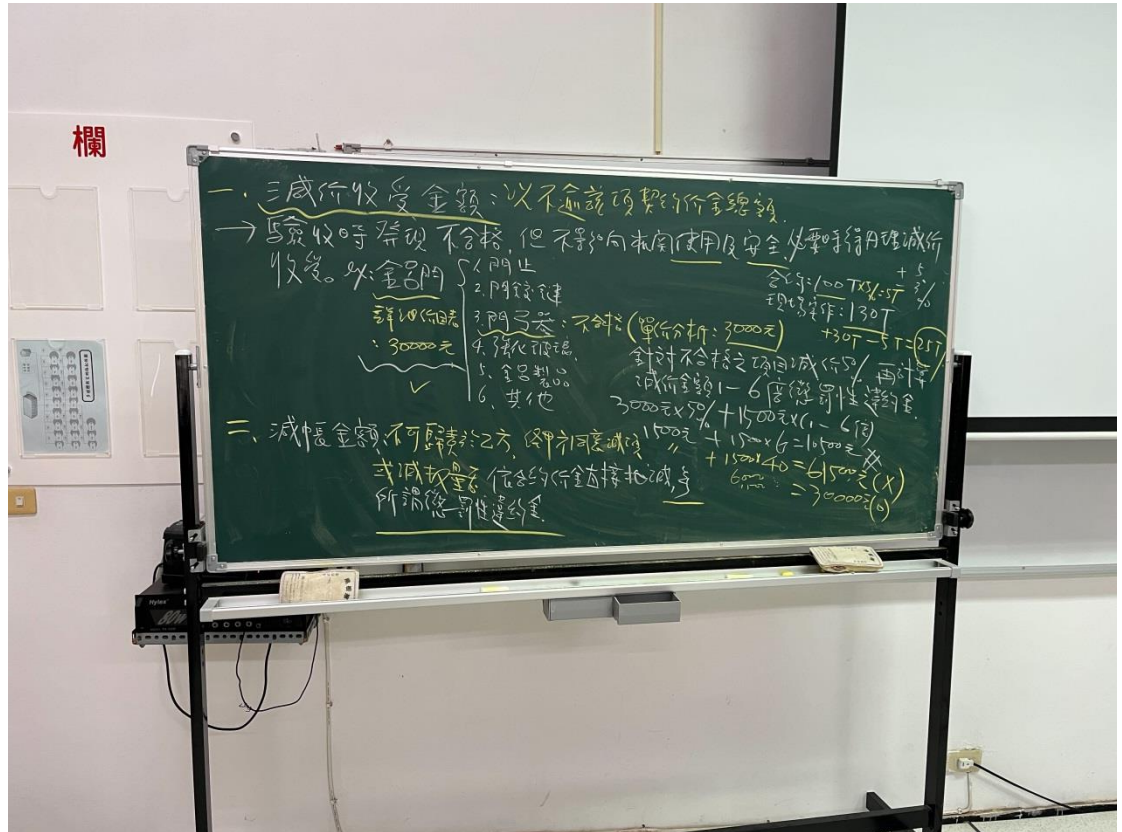 欄
一、減价收受金額：以不逾該項契約价金總額.
→驗收時發現不合格，但不影响机関使用及安全.必要時得辦理減价
收受。如:金呂門
詳細价目表
:30000元
✓
1.門止
2.門鉸鏈
3.門弓器:不合格(單价分析:3000元)
4.強化玻璃
5.金呂製品
6.其他
+5%
合約:100T×5%=5T
現場實作:130T
+30T-5T=25T
針对不合格之項目減价50%再計算
減价金額1-6倍懲罰性違約金.
3000元×50%+1500元×(1-6倍)
1500元
+1500×6=10500元
+1500×40=61500元(X)
=30000元(O)
二、減帳金額:不可歸責於乙方,經甲方同意減項
或減數量者 依合約价金直接扣減,無
所謂懲罰性違約金.
Hylex
80W